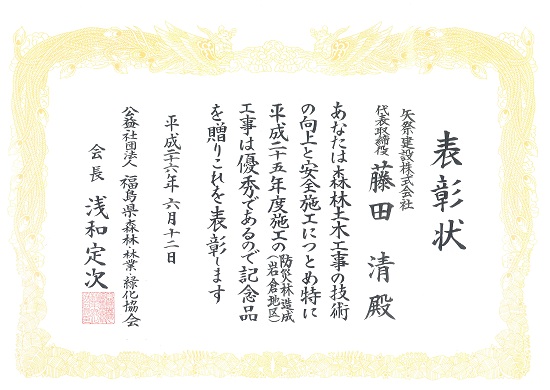 表彰状
矢祭建設株式会社
代表取締役 藤田 清 殿
あなたは森林土木工事の技術
の向上と安全施工につとめ特に
平成二十五年度施工の(防災林造成
(岩倉地区)
工事は優秀であるので記念品
を贈りこれを表彰します
平成二十六年 六月十二日
公益社団法人 福島県森林・林業・緑化協会
会長 浅和定次